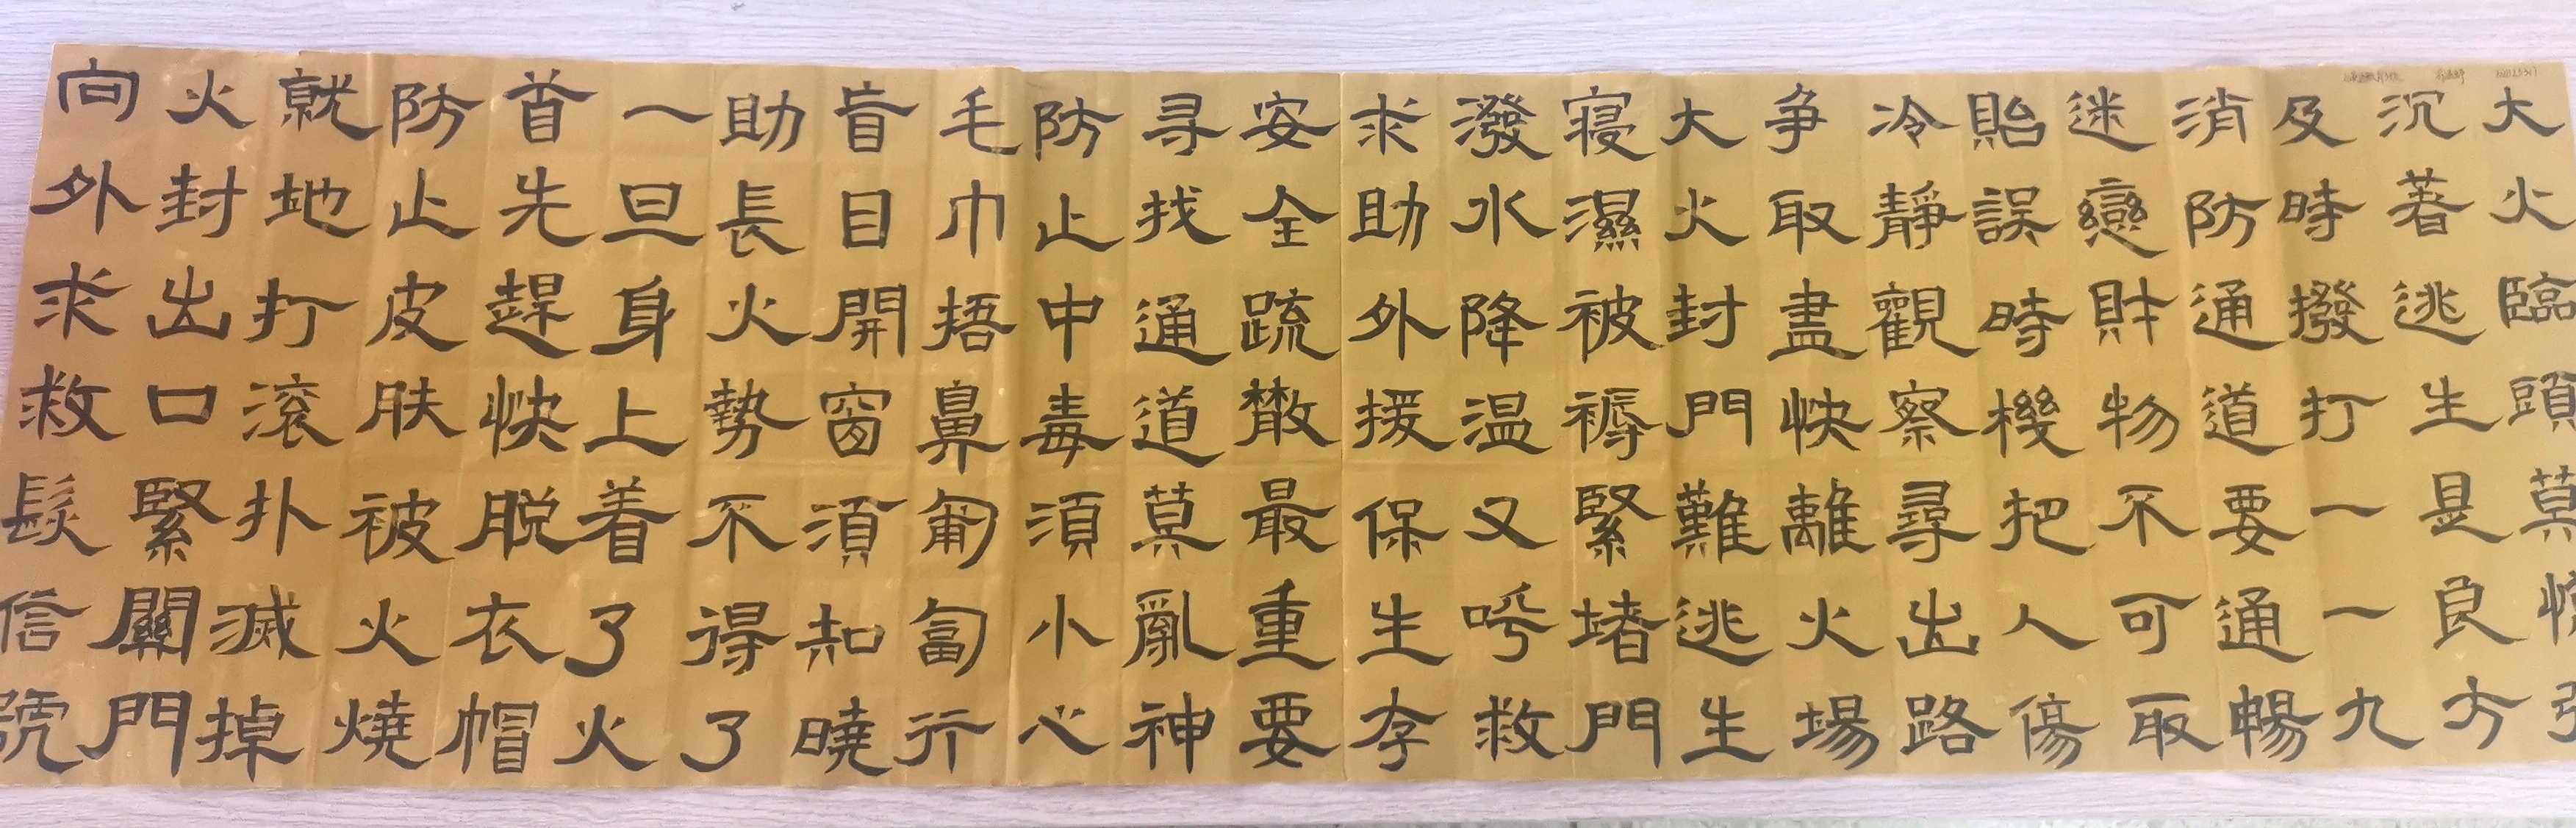 大火臨頭莫慌張
沉著逃生是良方
及時撥打一一九
消防通道要通暢
迷戀財物不可取
貽誤時機把人傷
冷靜觀察尋出路
争取盡快離火場
大火封門難逃生
寝濕被褥緊堵門
潑水降温又呼救
求助外援保生存
安全疏散最重要
寻找通道莫亂神
防止中毒須小心
毛巾捂鼻匍匐行
盲目開窗須知曉
助長火勢不得了
一旦身上着了火
首先趕快脱衣帽
防止皮肤被火燒
就地打滚扑滅掉
火封出口緊關門
向外求救髮信號